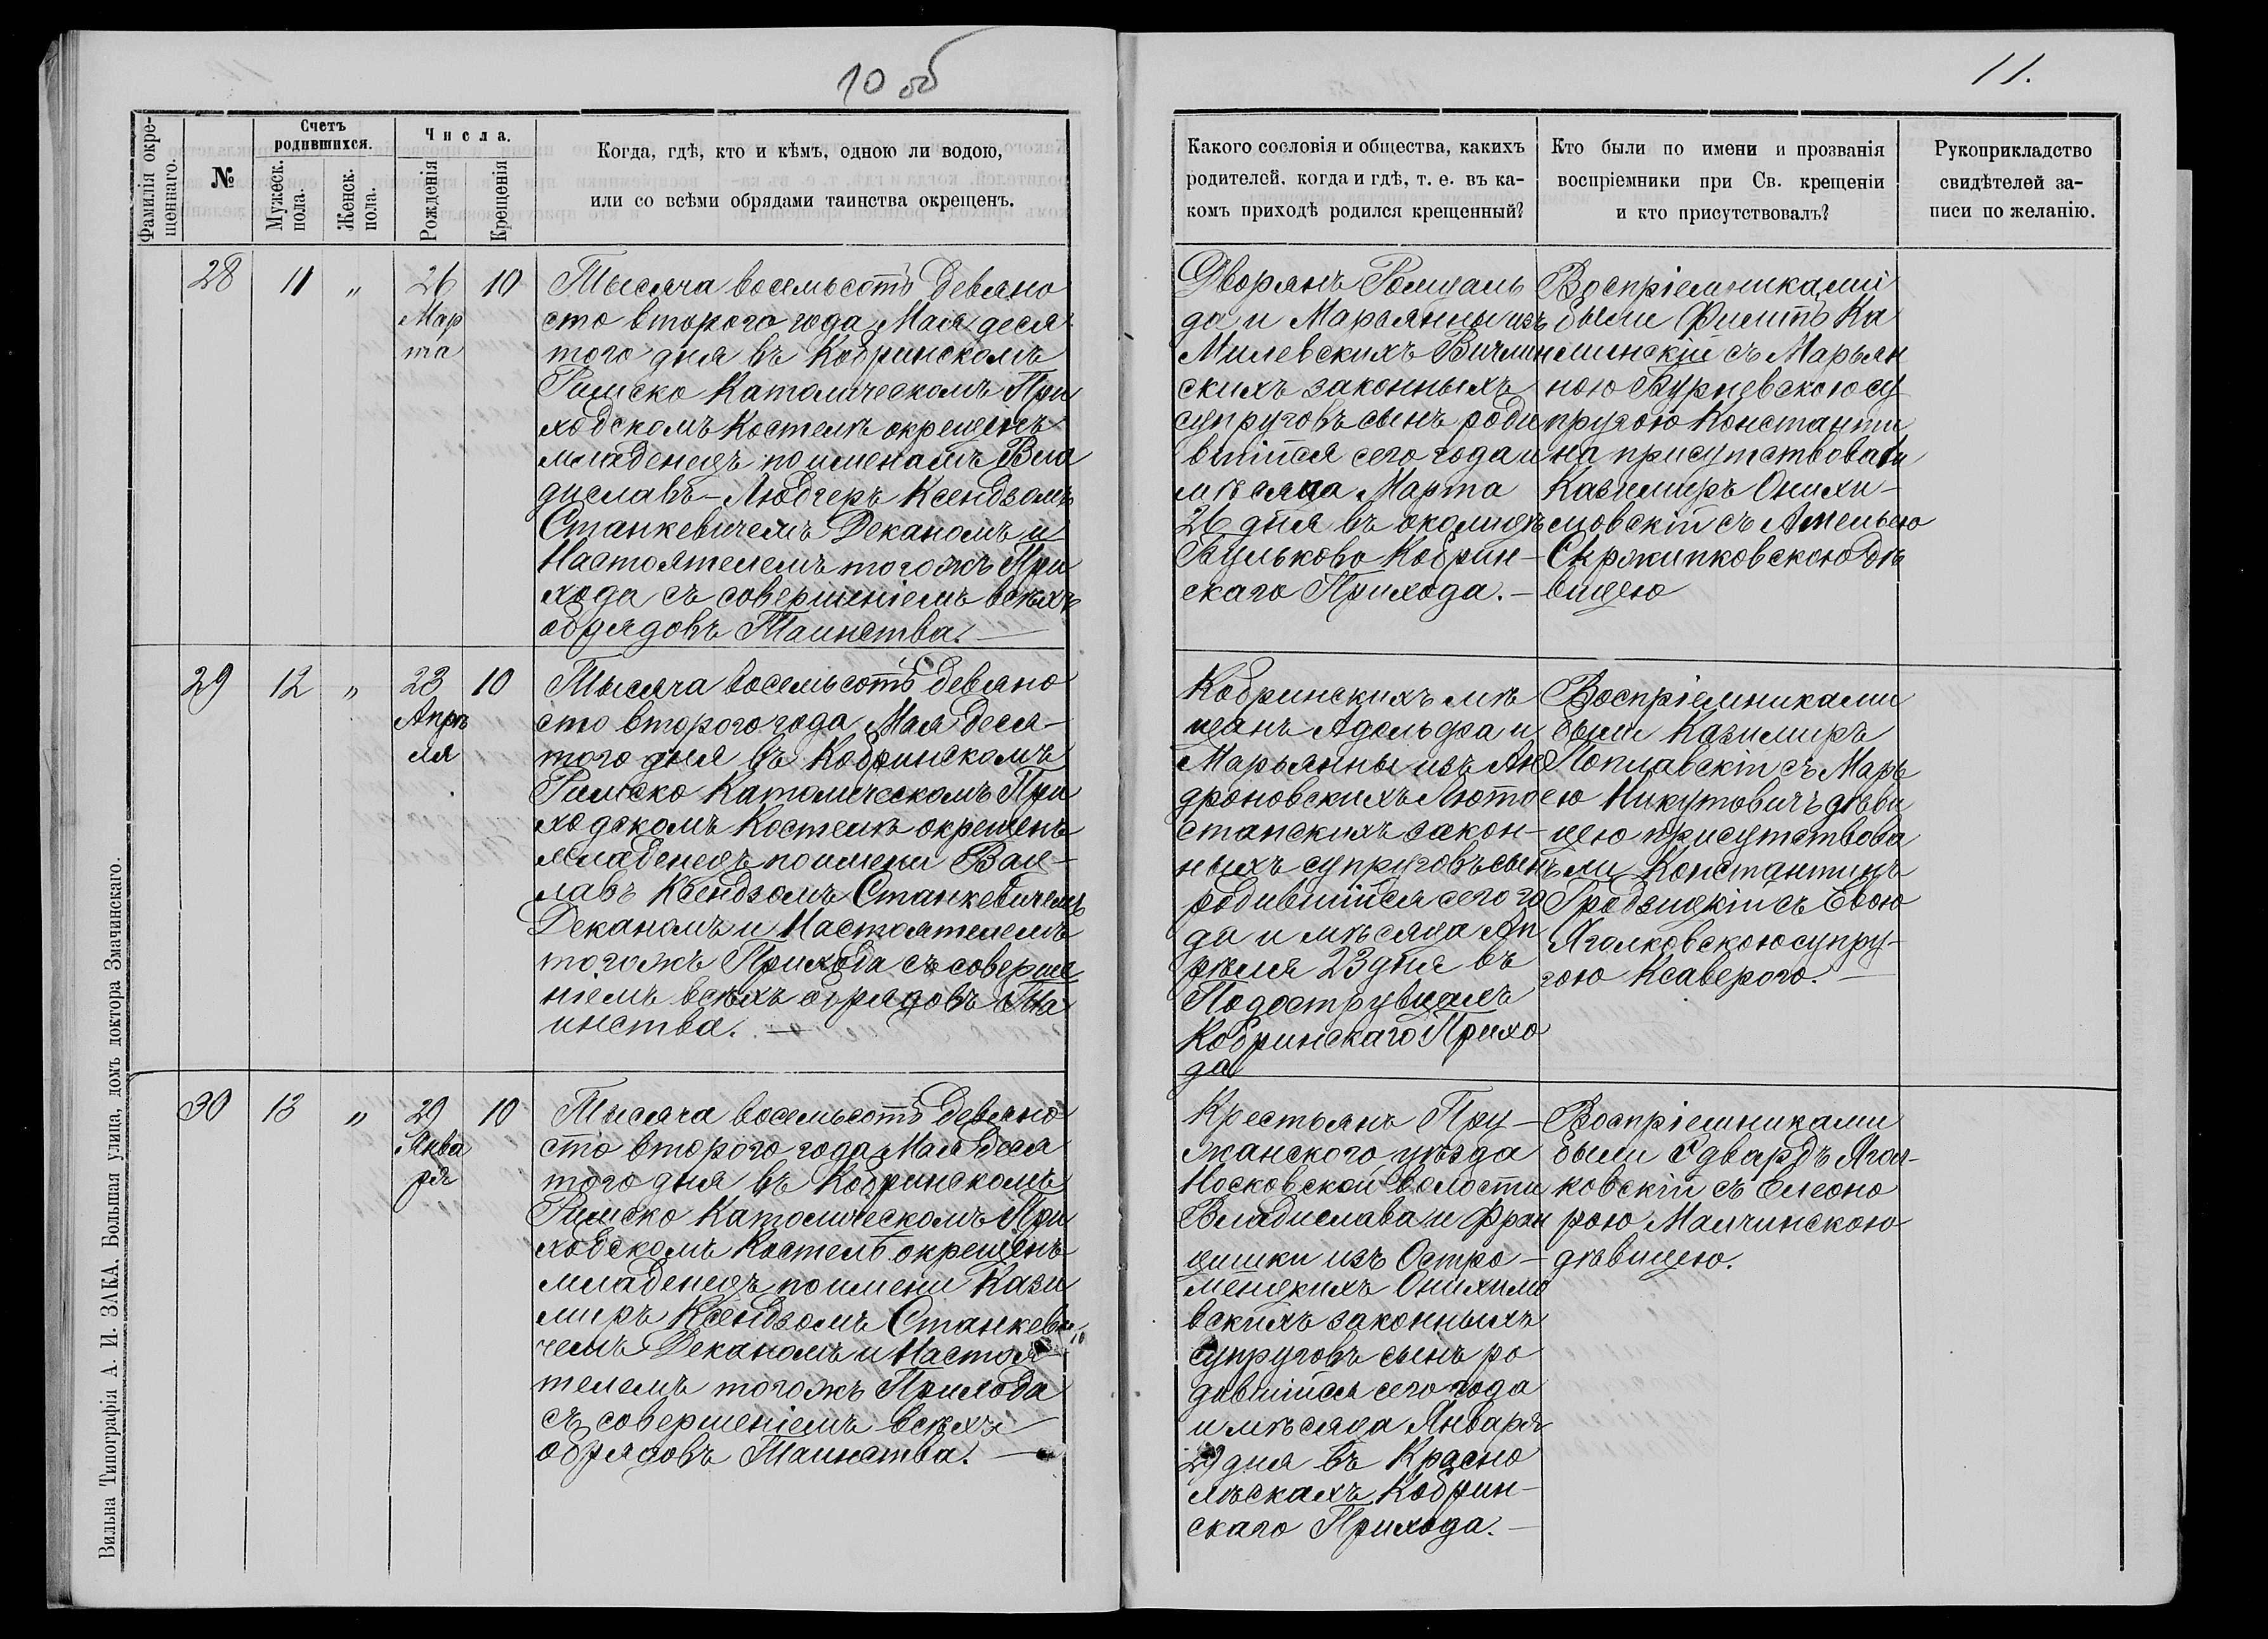 10 об
11.
Фамилія окре-
щеннаго.
№
Счетъ
родившихся.
Мужеск.
пола.
Женск.
пола.
Числа.
Рожденія
Крещенія
Когда, гдѣ, кто и кѣмъ, одною ли водою,
или со всѣми обрядами таинства окрещенъ.
Какого сословія и общества, какихъ
родителей, когда и гдѣ, т. е. въ ка-
комъ приходѣ родился крещенный?
Кто были по имени и прозванія
воспріемники при Св. крещеніи
и кто присутствовалъ?
Рукоприкладство
свидѣтелей за-
писи по желанію.
28 11 „ 26 10
Мар
та
Тысяча восемьсотъ девяно
сто второго года Мая деся
того дня въ Кобринскомъ
Римско Католическомъ При
ходскомъ Костелѣ окрещенъ
младенецъ по именамъ Вла
диславъ-Людгеръ Ксендзомъ
Станкевичемъ Деканомъ и
Настоятелемъ того-жъ При
хода съ совершеніемъ всѣхъ
обрядовъ Таинства. —
Дворянъ Ромуаль
да и Марьянны изъ
Милевскихъ Вичлин
скихъ законныхъ
супруговъ сынъ роди
вшійся сего года и
мѣсяца Марта
26 дня въ околицѣ
Бульково Кобрин-
скаго Прихода. —
Воспріемниками
были Филиппъ Ка
минскій съ Марьян
ною су
пругою Константи
на присутствовали
Казимиръ Онихи-
мовскій съ Амельею
Скржипковскою дѣ
вицею
29 12 „ 23 10
Апрѣ
ля
Тысяча восемьсотъ девяно
сто второго года Мая деся-
того дня въ Кобринскомъ
Римско Католическомъ При
ходскомъ Костелѣ окрещенъ
младенецъ по имени Вац-
лавъ Ксендзомъ Станкевичемъ
Деканомъ и Настоятелемъ
того-жъ Прихода съ соверше
ніемъ всѣхъ обрядовъ Та
инства. —
Кобринскихъ мѣ
щанъ Адольфа и
Марьянны изъ Ан
дроновскихъ Люто
станскихъ закон-
ныхъ супруговъ сынъ
родившійся сего го
да и мѣсяца Ап
рѣля 23 дня въ
Кобринскаго Прихо
да
Воспріемниками
были Казимиръ
Поплавскій съ Марь
ею Никутовичъ дѣви
цею присутствова
ли Константинъ
Гродзицкій съ Евою
Яголковскою супру-
гою Ксаверого. —
30 13 „ 29 10
Янва
ря
Тысяча восемьсотъ девяно
сто второго года Мая деся
того дня въ Кобринскомъ
Римско Католическомъ При
ходскомъ Костелѣ окрещенъ
младенецъ по имени Кази
миръ Ксендзомъ Станкеви
чемъ Деканомъ и Настоя-
телемъ того-жъ Прихода
съ совершеніемъ всѣхъ
обрядовъ Таинства. —
Крестьянъ Пру-
жанского уѣзда
Носковской волости
Владислава и Фран
цишки изъ Остро-
менцкихъ Онихимо
вскихъ законныхъ
супруговъ сынъ ро
дившійся сего года
и мѣсяца Января
29 дня въ Красно
лѣскахъ Кобрин-
скаго Прихода. —
Воспріемниками
были Эдвардъ Ягол-
ковскій съ Елеоно
рою Малчинскою
дѣвицею.
Вильна Типографія А. И. ЗАКА. Большая улица, домъ доктора Змачинскаго.